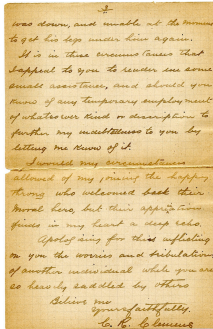 3
was down, and unable at the moment
to get his legs under him again.
It is in these circumstances that
I appeal to you to render me some
small assistance, and should you
know of any temporary employment
of whatsoever kind or description to
further my indebtedness to you by
letting me know of it.
I would my circumstances
allowed of my joining the happy
throng who welcomed back their
moral hero, but their appreciation
finds in my heart a deep echo.
Apologising for this inflicting
on you the worries and tribulations
of another individual while you are
so heavily saddled by others
Believe me
Yours faithfully,
C. R. Clemens